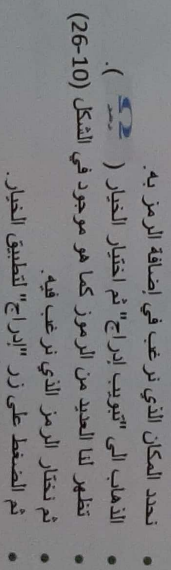 • نحدد المكان الذي نرغب في إضافة الرمز به.
• الذهاب الى "تبويب إدراج" ثم اختيار الخيار ( رمز ).
• تظهر لنا العديد من الرموز كما هو موجود في الشكل (10-26)
• ثم نختار الرمز الذي نرغب فيه.
• ثم الضغط على زر "إدراج" لتطبيق الخيار.